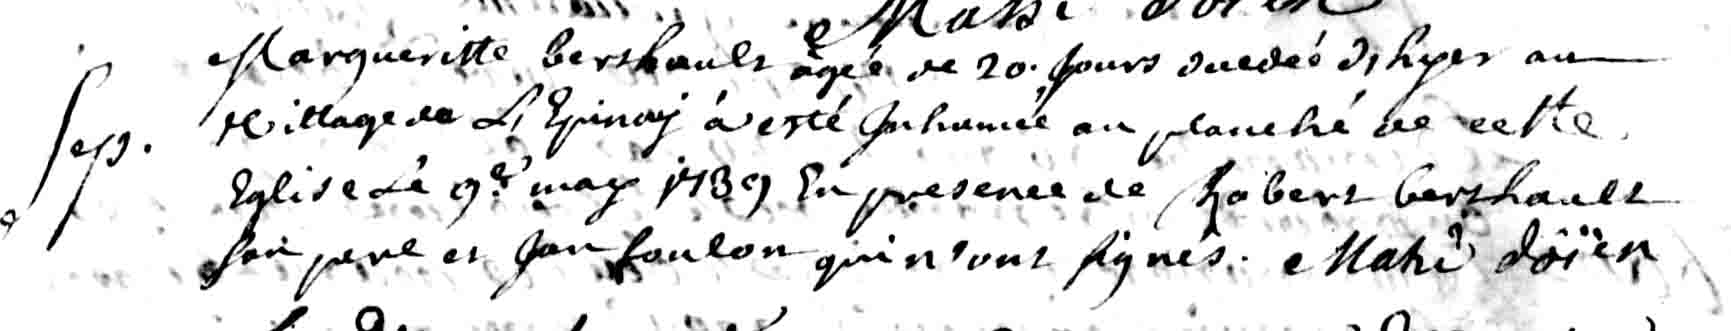 Mahé doïen
Margueritte berthault âgée de 20. Jours decedée d'hyer au
Sep.
Village de L'Epinay a esté Inhumée au planché de cette
Eglise Le 9e. may 1739 En presence de Robert berthault
son pere et Jan foulon qui n'ont signés. Mahé doïen